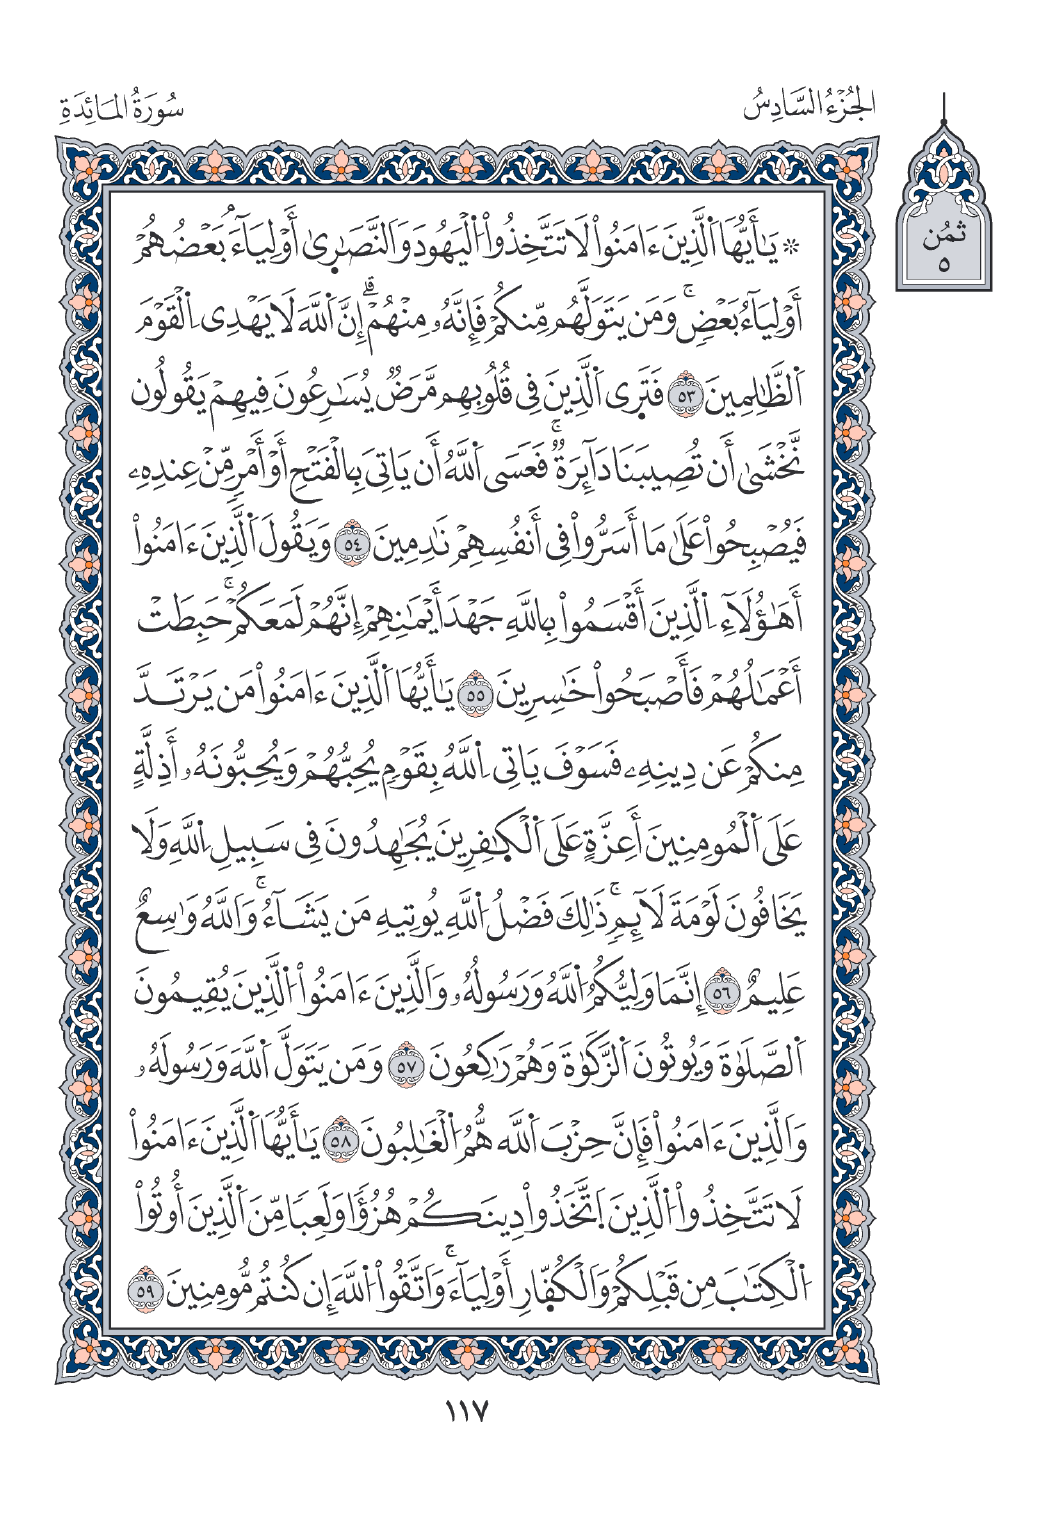 الجُزْءُ السَّادِسُ
سُورَةُ المَائِدَةِ
ثُمُن
٥
۞ يَٰأَيُّهَا اَ۬لَّذِينَ ءَامَنُواْ لَا تَتَّخِذُواْ اُ۬لْيَهُودَ وَالنَّصَٰر۪ىٰ أَوْلِيَآءَۘ بَعْضُهُمْ
أَوْلِيَآءُ بَعْضٖۚ وَمَن يَتَوَلَّهُم مِّنكُمْ فَإِنَّهُۥ مِنْهُمْۗ إِنَّ اَ۬للَّهَ لَا يَهْدِى اِ۬لْقَوْمَ
اَ۬لظَّٰلِمِينَ ٥٣ فَتَرَى اَ۬لَّذِينَ فِى قُلُوبِهِم مَّرَضٞ يُسَٰرِعُونَ فِيهِمْ يَقُولُون
نَّخْش۪ىٰ أَن تُصِيبَنَا دَآئِرَةٞۚ فَعَسَى اَ۬للَّهُ أَن يَاتِىَ بِالْفَتْحِ أَوْ أَمْرٖ مِّنْ عِندِهِۦ
فَيُصْبِحُواْ عَلَىٰ مَا أَسَرُّواْ فِى أَنفُسِهِمْ نَٰدِمِينَ ٥٤ وَيَقُولَ اَ۬لَّذِينَ ءَامَنُواْ
أَهَٰؤُلَآءِ اِ۬لَّذِينَ أَقْسَمُواْ بِاللَّهِ جَهْدَ أَيْمَٰنِهِمْ إِنَّهُمْ لَمَعَكُمْۚ حَبِطَتْ
أَعْمَٰلُهُمْ فَأَصْبَحُواْ خَٰسِرِينَ ٥٥ يَٰأَيُّهَا اَ۬لَّذِينَ ءَامَنُواْ مَن يَرْتَدَّ
مِنكُمْ عَن دِينِهِۦ فَسَوْفَ يَاتِى اِ۬للَّهُ بِقَوْمٖ يُحِبُّهُمْ وَيُحِبُّونَهُۥ أَذِلَّةٍ
عَلَى اَ۬لْمُومِنِينَ أَعِزَّةٍ عَلَى اَ۬لْكٰ۪فِرِينَ يُجَٰهِدُونَ فِى سَبِيلِ اِ۬للَّهِ وَلَا
يَخَافُونَ لَوْمَةَ لَآئِمٖۚ ذَٰلِكَ فَضْلُ اُ۬للَّهِ يُوتِيهِ مَن يَشَآءُۚ وَاللَّهُ وَٰسِعٌ
عَلِيمٌ ٥٦ إِنَّمَا وَلِيُّكُمُ اُ۬للَّهُ وَرَسُولُهُۥ وَالَّذِينَ ءَامَنُواْ اُ۬لَّذِينَ يُقِيمُونَ
اَ۬لصَّلَوٰةَ وَيُوتُونَ اَ۬لزَّكَوٰةَ وَهُمْ رَٰكِعُونَ ٥٧ وَمَن يَتَوَلَّ اَ۬للَّهَ وَرَسُولَهُۥ
وَالَّذِينَ ءَامَنُواْ فَإِنَّ حِزْبَ اَ۬للَّه هُّمُ اُ۬لْغَٰلِبُونَ ٥٨ يَٰأَيُّهَا اَ۬لَّذِينَ ءَامَنُواْ
لَا تَتَّخِذُواْ اُ۬لَّذِينَ اَ۪تَّخَذُواْ دِينَكُمْ هُزُؤٗا وَلَعِبٗا مِّنَ اَ۬لَّذِينَ أُوتُواْ
اُ۬لْكِتَٰبَ مِن قَبْلِكُمْ وَالْكُفّ۪ارِ أَوْلِيَآءَۚ وَاتَّقُواْ اُ۬للَّهَ إِن كُنتُم مُّومِنِينَ ٥٩
١١٧